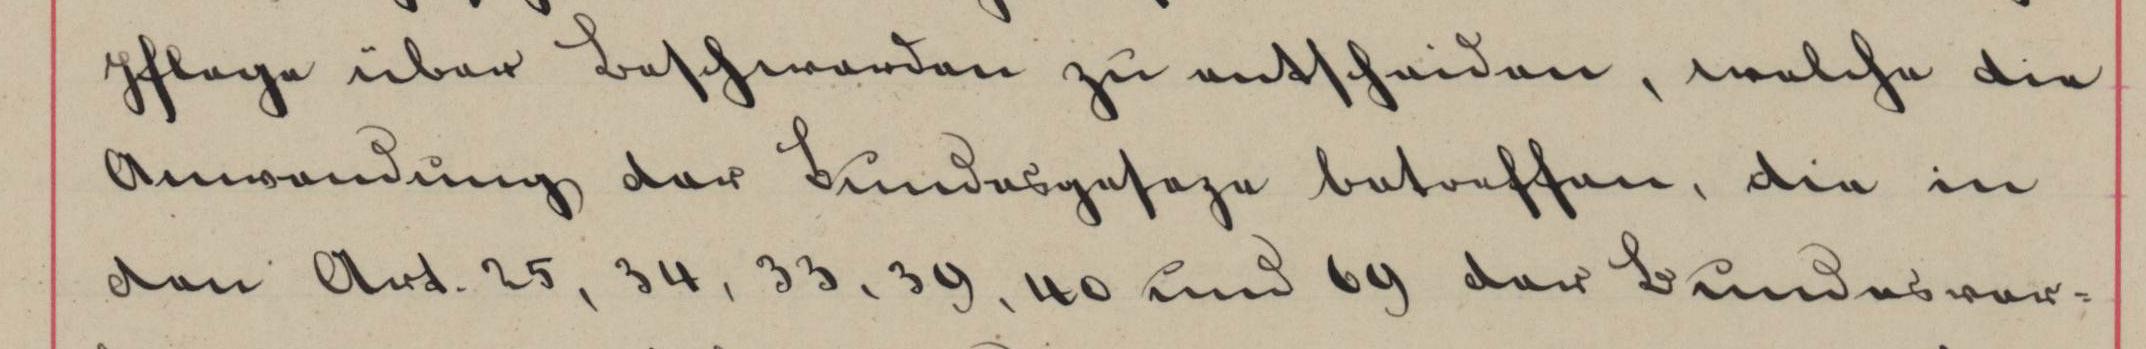 pflege über Beschwerden zu entscheiden, welche die
Anwendung der Bundesgeseze betreffen, die in
den Art. 25, 34, 33, 39, 40 und 69 der Bundesver-